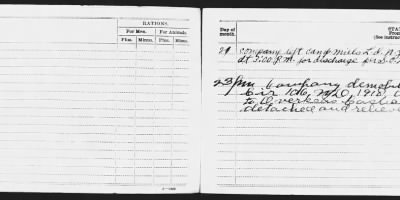 RATIONS.
For Men. For Animals.
Plus. Minus. Plus. Minus.
Day of month.
STA
From
(See instruc
29 company left camp Mills L. I. N.
at 3:00 P.M. for discharge per S.O.
23 company demob
Cir 106, W.D., 1918,
to Overseas
detached and reliev